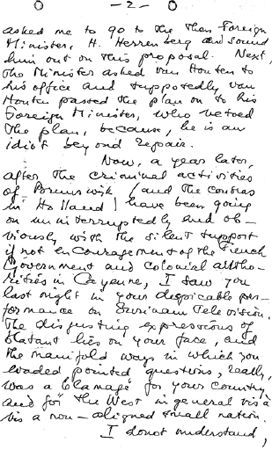 - 2 -
asked me to go to the then Foreign
Minister, H. Herrenberg and sound
him out on this proposal. Next,
the Minister asked van Houten to
his office and supposedly van
Houten passed the plan on to his
Foreign Minister, who vetoed
the plan, because, he is an
idiot beyond repair.
Now, a year later,
after the criminal activities
of Brunswijk (and the contras
in Holland) have been going
on uninterruptedly and ob-
viously with the silent support
if not encouragement of the French
Government and colonial autho-
rities in Cayenne, I saw you
last night in your despicable per-
formance on Surinam Television.
The disgusting expressions of
blatant lies on your face, and
the manifold ways in which you
evaded pointed questions, really,
was a blamage for your country
and for the West in general vis à
vis a non-aligned small nation.
I do not understand,